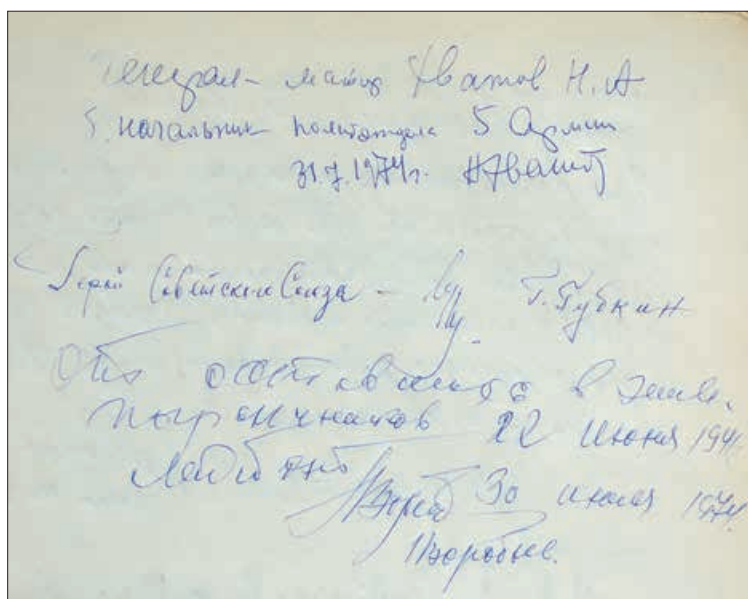 Генерал-майор Иванов Н.А
начальник политотдела 5 Армии
31.7.1974г.
Герой Советского Союза - Г. Губкин
От оставшихся в
пограничников 22 июня 1941
30 июля 1974
Воробьев.